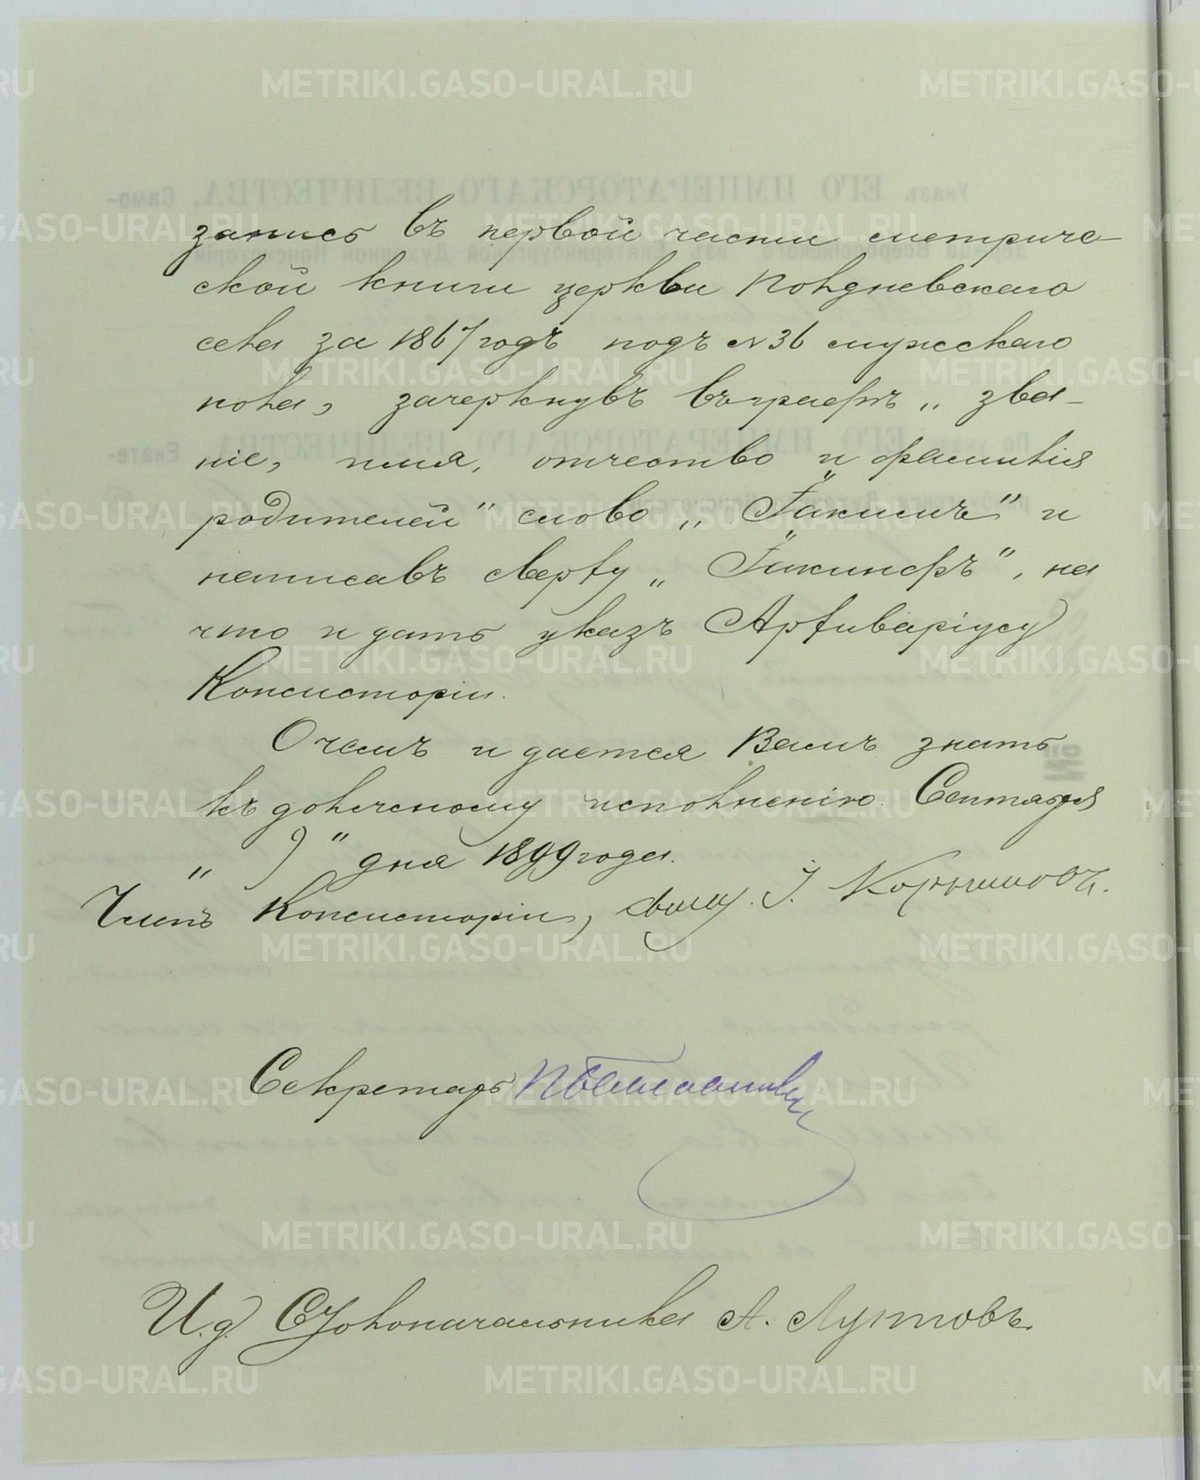 запись въ первой части метриче-
ской книги церкви Полдневскаго
села за 1867 годъ подъ №36 мужскаго
пола, зачеркнувъ въ графѣ „зва-
ніе, имя, отчество и фамилія
родителей" слово „Іакимъ" и
написавъ сверху „Іакинфъ", на
что и дать указъ Архиваріусу
Консисторіи.
О чемъ и дается Вамъ знать
къ должному исполненію. Сентября
„ " дня 1899 года.
Членъ Консисторіи, свящ. І.
Секретарь
И. д. Столоначальника А. Луптовъ.
METRIKI.GASO-URAL.RU